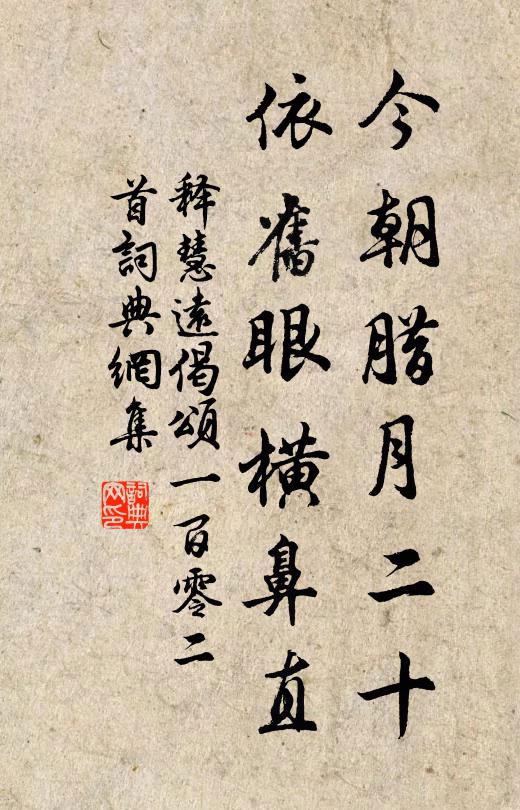 今朝腊月二十
依舊眼橫鼻直
释慧遠偈頌一百零二
首詞典網集
詞典
网印